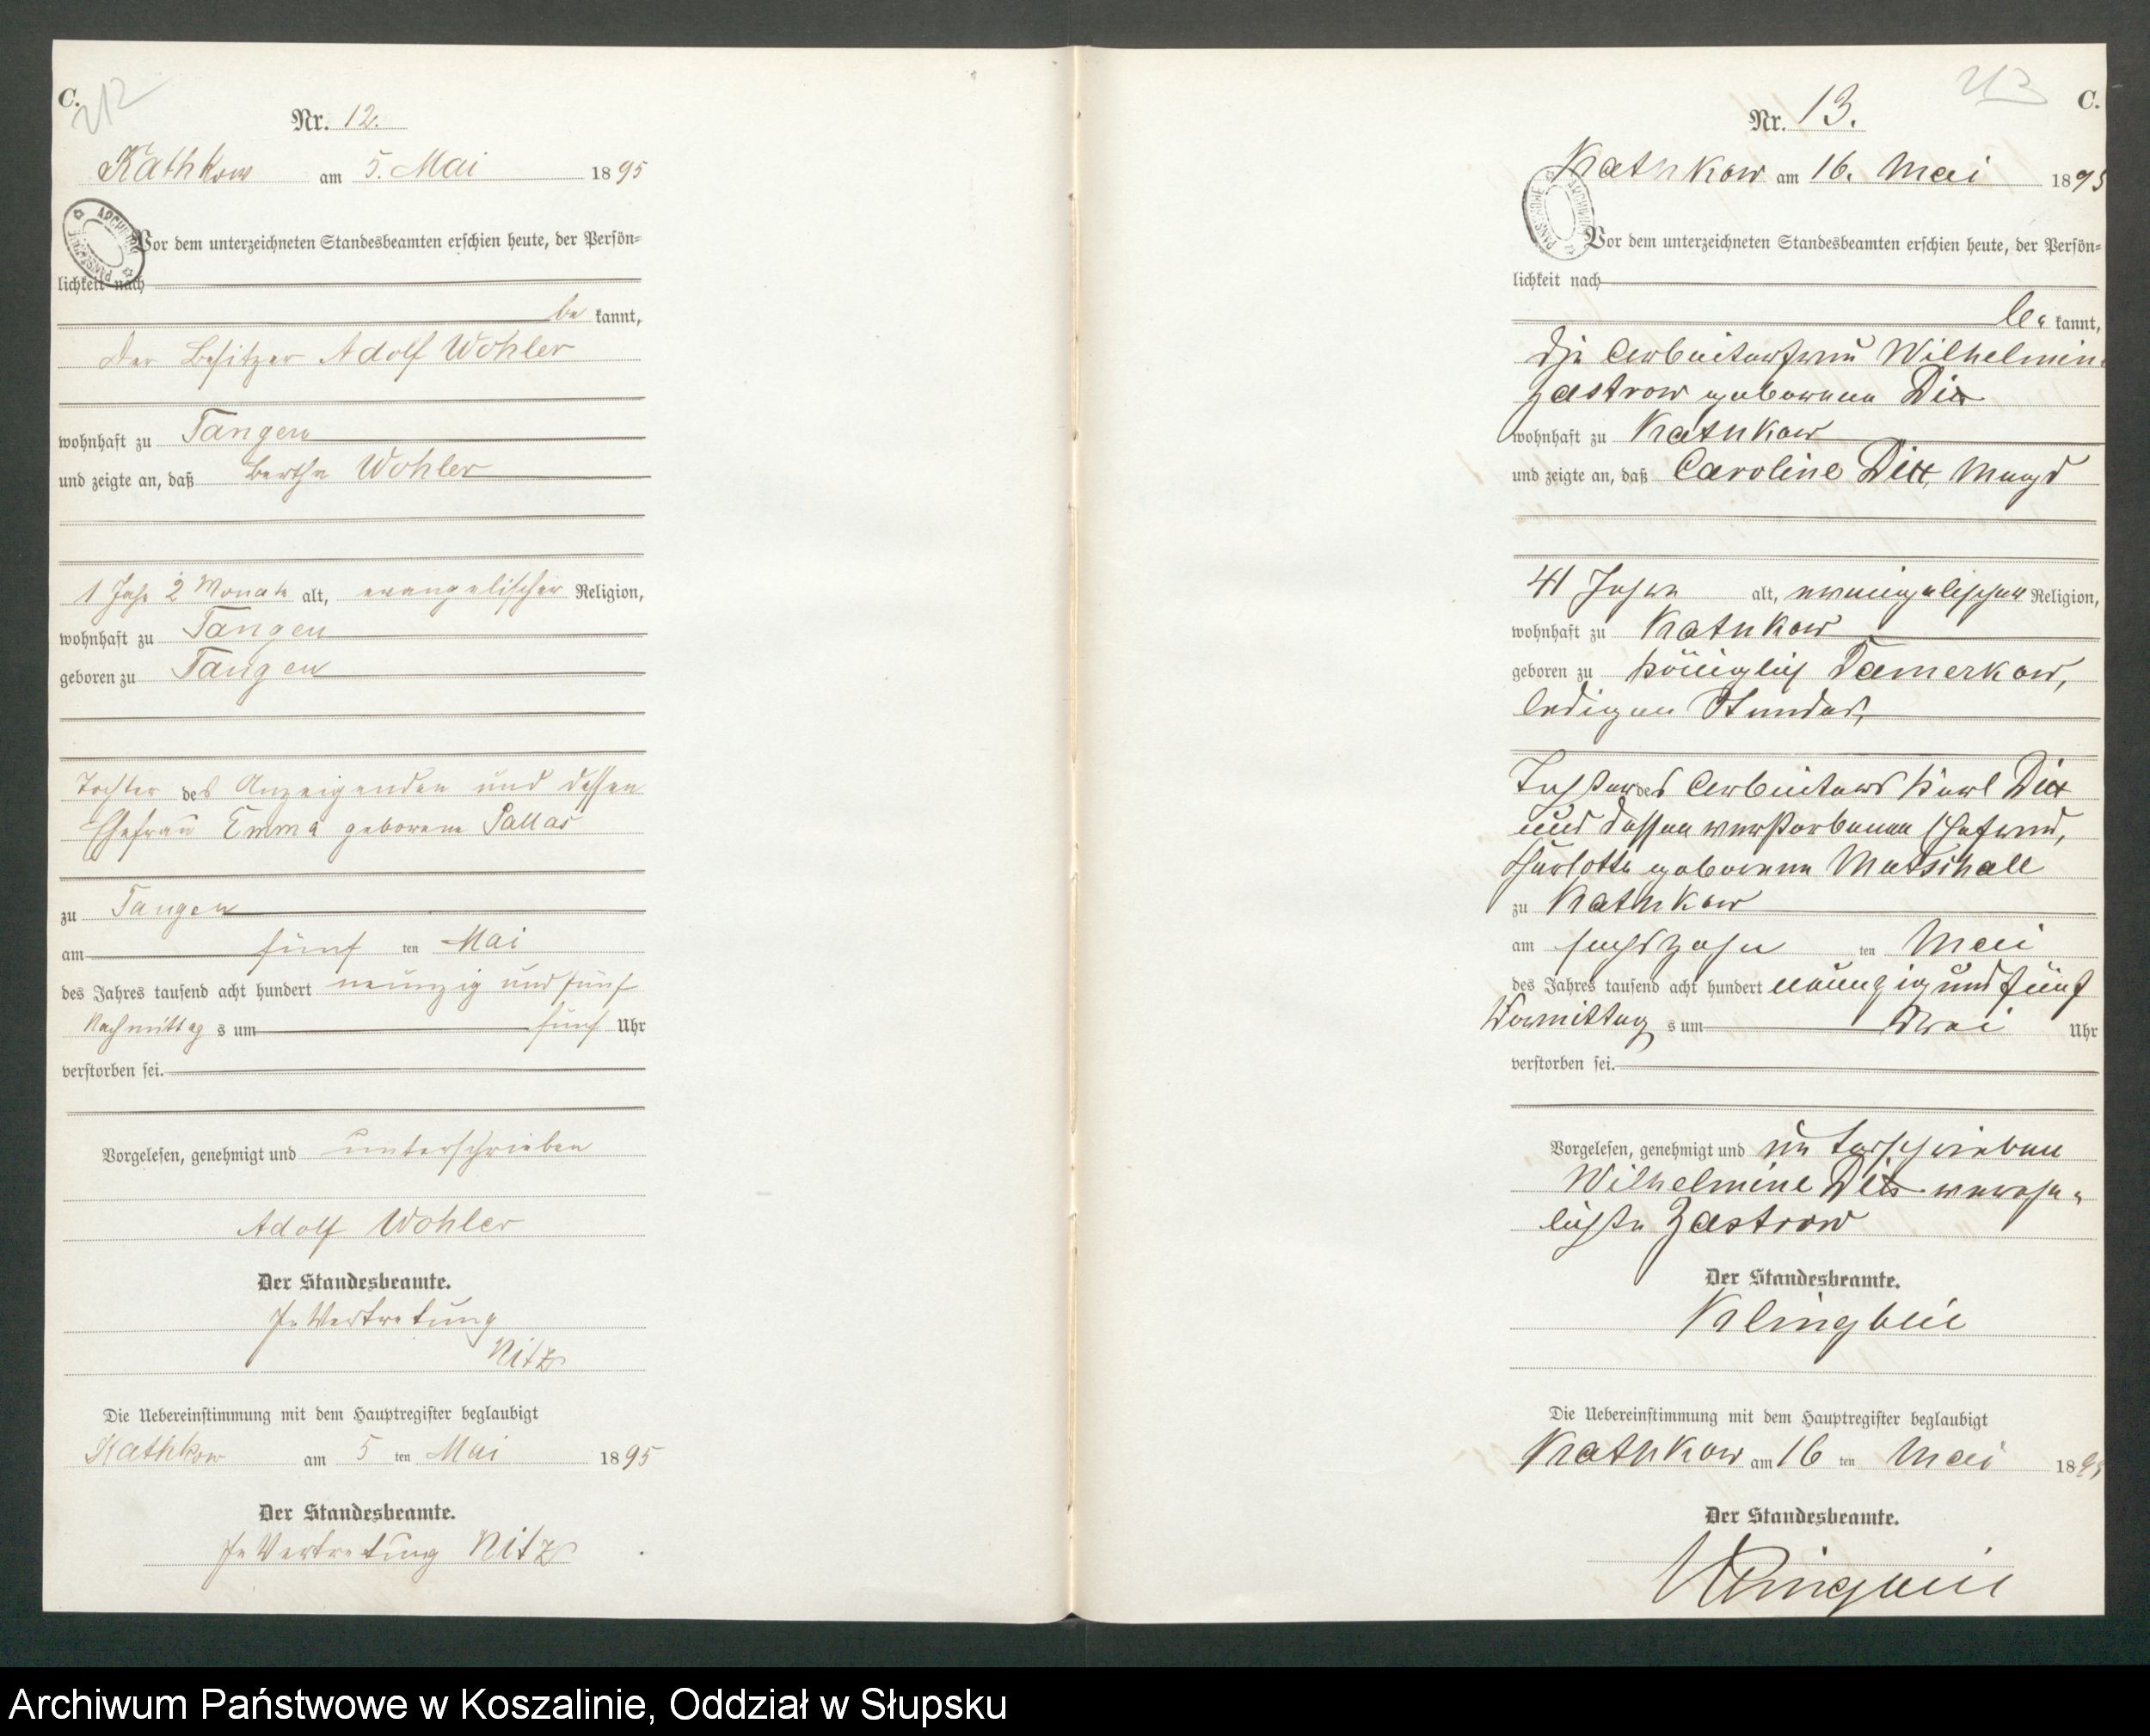 C.
212
Nr. 12.
Kathkow am 5. Mai 1895
Vor dem unterzeichneten Standesbeamten erschien heute, der Persön=
lichkeit nach
be kannt,
der Besitzer Adolf Wohler
wohnhaft zu Tangen
und zeigte an, daß Bertha Wohler
1 Jahr 2 Monate alt, evangelischer Religion,
wohnhaft zu Tangen
geboren zu Tangen
Tochter des Anzeigenden und dessen
Ehefrau Emma geborene Pallas
zu Tangen
am fünf ten Mai
des Jahres tausend acht hundert neunzig und fünf
Nachmittag s um fünf Uhr
verstorben sei.
Vorgelesen, genehmigt und unterschrieben
Adolf Wohler
Der Standesbeamte.
In Vertretung
Nitz
Die Uebereinstimmung mit dem Hauptregister beglaubigt
Kathkow am 5 ten Mai 1895
Der Standesbeamte.
In Vertretung Nitz
213
C.
Nr. 13.
Kathkow am 16. Mai 1895
Vor dem unterzeichneten Standesbeamten erschien heute, der Persön=
lichkeit nach
be kannt,
die Arbeiterfrau Wilhelmine
Zastrow geborene
wohnhaft zu Kathkow
und zeigte an, daß Caroline Magd
41 Jahre alt, evangelischer Religion,
wohnhaft zu Kathkow
geboren zu Königlich Damerkow,
ledigen Standes,
Tochter des Arbeiters Karl
und dessen verstorbenen Ehefrau,
Charlotte geborene Matschall
zu Kathkow
am sechszehn ten Mai
des Jahres tausend acht hundert neunzig und fünf
Vormittag s um drei Uhr
verstorben sei.
Vorgelesen, genehmigt und unterschrieben
Wilhelmine verehe=
lichte Zastrow
Der Standesbeamte.
Klingbeil
Die Uebereinstimmung mit dem Hauptregister beglaubigt
Kathkow am 16 ten Mai 1895
Der Standesbeamte.
Klingbeil
Archiwum Państwowe w Koszalinie, Oddział w Słupsku